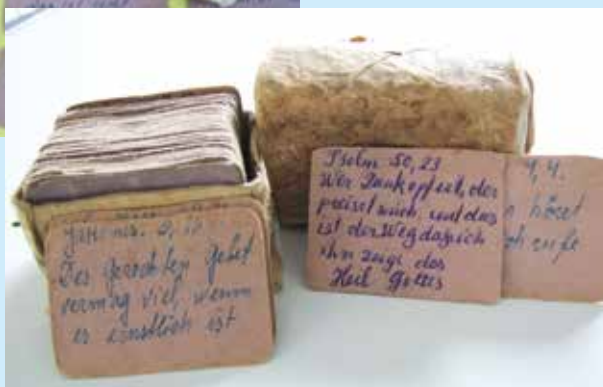 Jakobus. 5, 16
Des Gerechten Gebet
vermag viel, wenn
es ernstlich ist
Psalm 50, 23
Wer Dank opfert, der
preiset mich, und das
ist der Weg dass ich
ihm zeige das
Heil Gottes
4, 4.
höret
ich rufe